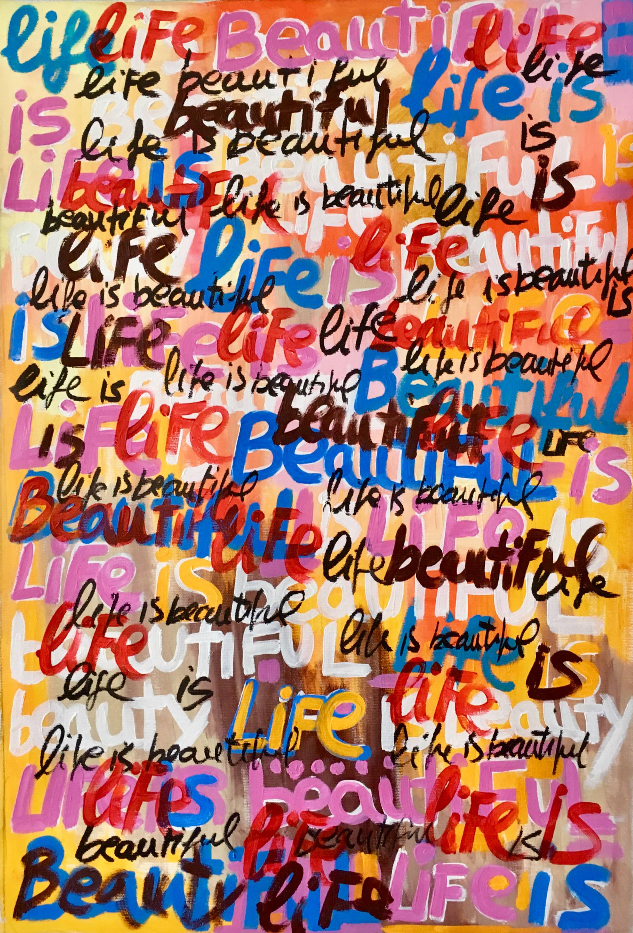 life life Beautiful life
life beautiful life
is beautiful life is
life is beautiful is
Life is Beautiful is
beautiful life is beautiful life is
beautiful life
life life is life Beautiful
life is beautiful life is beautiful is
is Life life life beautiful
life is beautiful
life is life is beautiful Beautiful
Life is life beautiful life life
Beautiful is
life is beautiful life is beautiful
Beautiful life is Life is
life beautiful life
Life is beautiful
life is beautiful life is beautiful
life beautiful life is
life is life
beauty Life beauty
life is beautiful life is beautiful
Life is life beautiful life is
beautiful life beautiful is
Beautiful life Life is